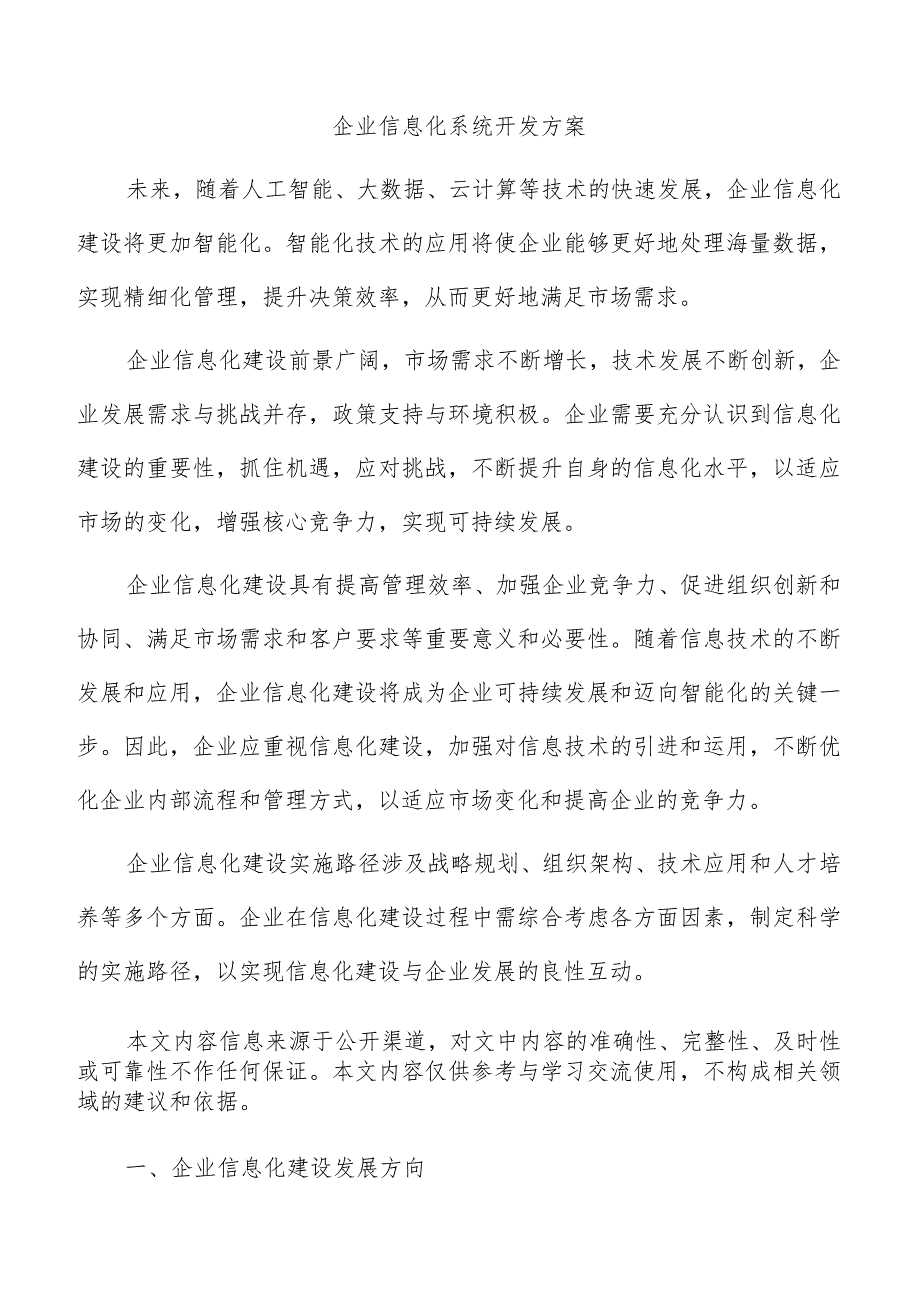 企业信息化系统开发方案
未来，随着人工智能、大数据、云计算等技术的快速发展，企业信息化
建设将更加智能化。智能化技术的应用将使企业能够更好地处理海量数据，
实现精细化管理，提升决策效率，从而更好地满足市场需求。
企业信息化建设前景广阔，市场需求不断增长，技术发展不断创新，企
业发展需求与挑战并存，政策支持与环境积极。企业需要充分认识到信息化
建设的重要性，抓住机遇，应对挑战，不断提升自身的信息化水平，以适应
市场的变化，增强核心竞争力，实现可持续发展。
企业信息化建设具有提高管理效率、加强企业竞争力、促进组织创新和
协同、满足市场需求和客户要求等重要意义和必要性。随着信息技术的不断
发展和应用，企业信息化建设将成为企业可持续发展和迈向智能化的关键一
步。因此，企业应重视信息化建设，加强对信息技术的引进和运用，不断优
化企业内部流程和管理方式，以适应市场变化和提高企业的竞争力。
企业信息化建设实施路径涉及战略规划、组织架构、技术应用和人才培
养等多个方面。企业在信息化建设过程中需综合考虑各方面因素，制定科学
的实施路径，以实现信息化建设与企业发展的良性互动。
本文内容信息来源于公开渠道，对文中内容的准确性、完整性、及时性
或可靠性不作任何保证。本文内容仅供参考与学习交流使用，不构成相关领
域的建议和依据。
一、企业信息化建设发展方向